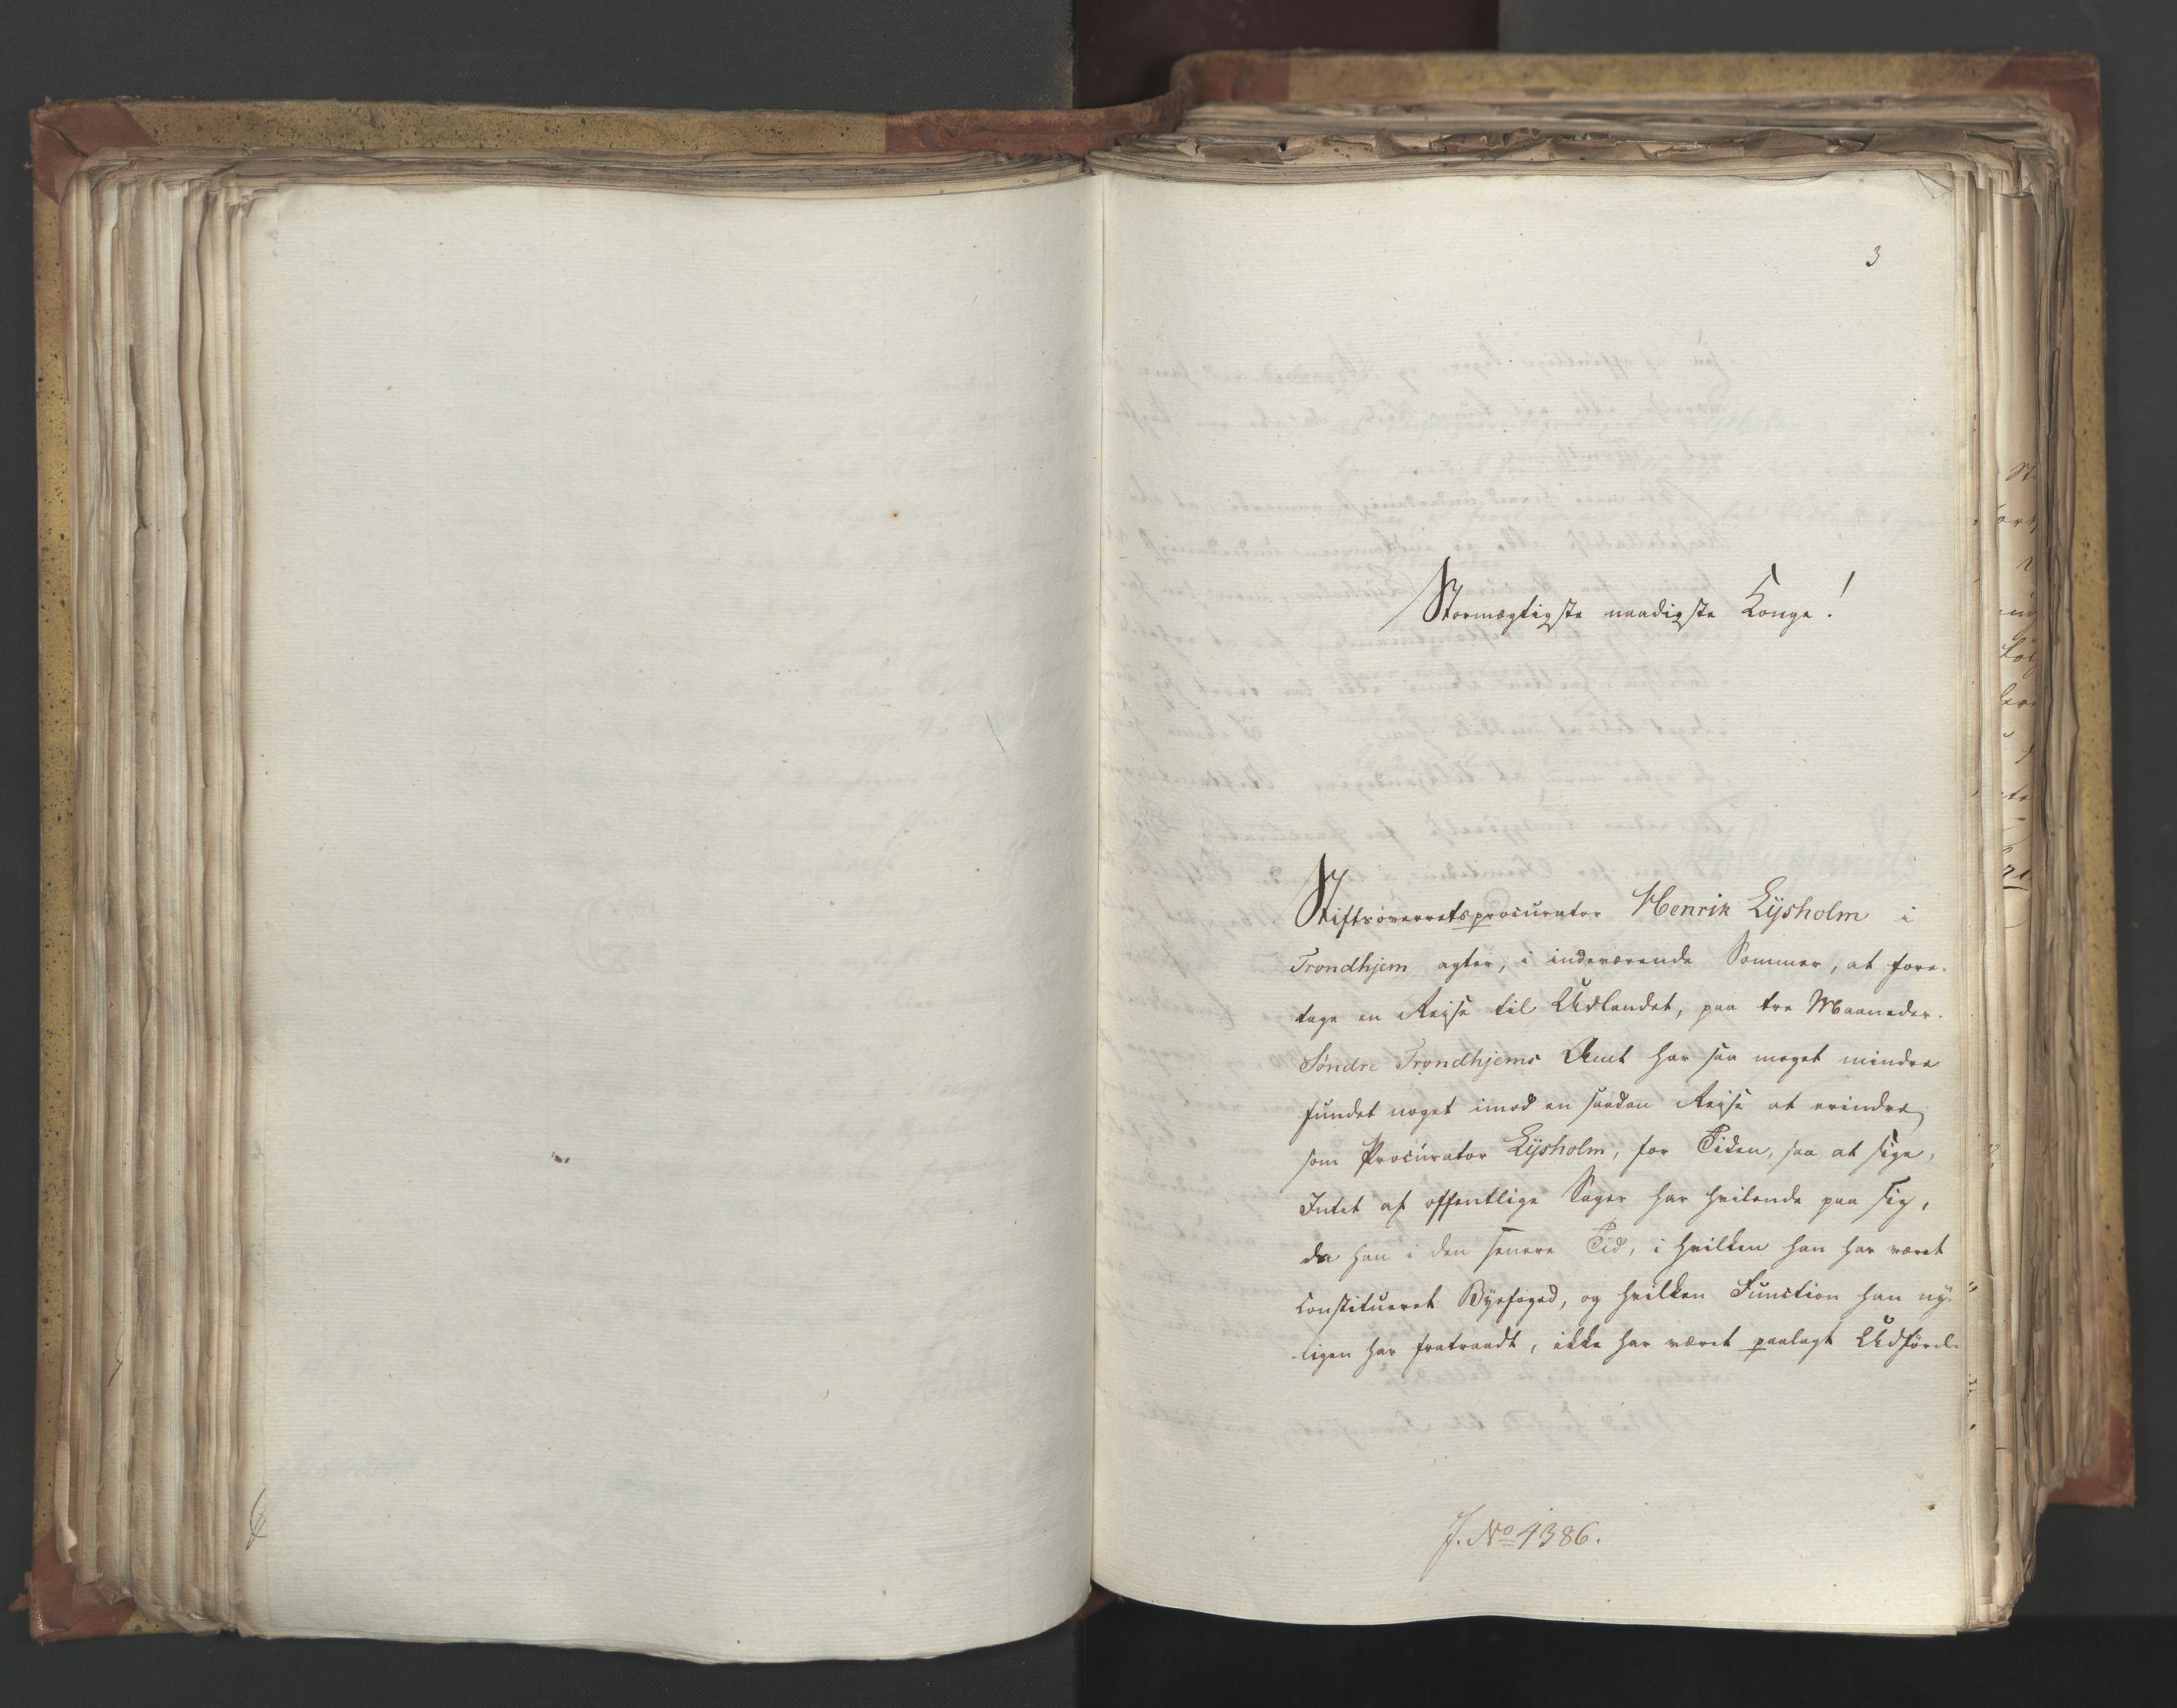 3
Stormægtigste naadigste Konge!
Stiftsoverretsprocurator Henrik Lysholm i
Trondhjem agter, i indeværende Sommer, at fore-
tage en Rejse til Udlandet, paa tre Maaneder.
Søndre Trondhjems Amt har saa meget mindre
fundet noget imod en saadan Rejse at erindre,
som Procurator Lysholm, for Tiden, saa at sige,
Intet af offentlige Sager har hvilende paa sig,
da han i den senere Tid, i hvilken han har været
constitueret Byefoged, og hvilken Function han ny-
ligen har fratraadt, ikke har været paalagt Udførel-
J. No 4386.